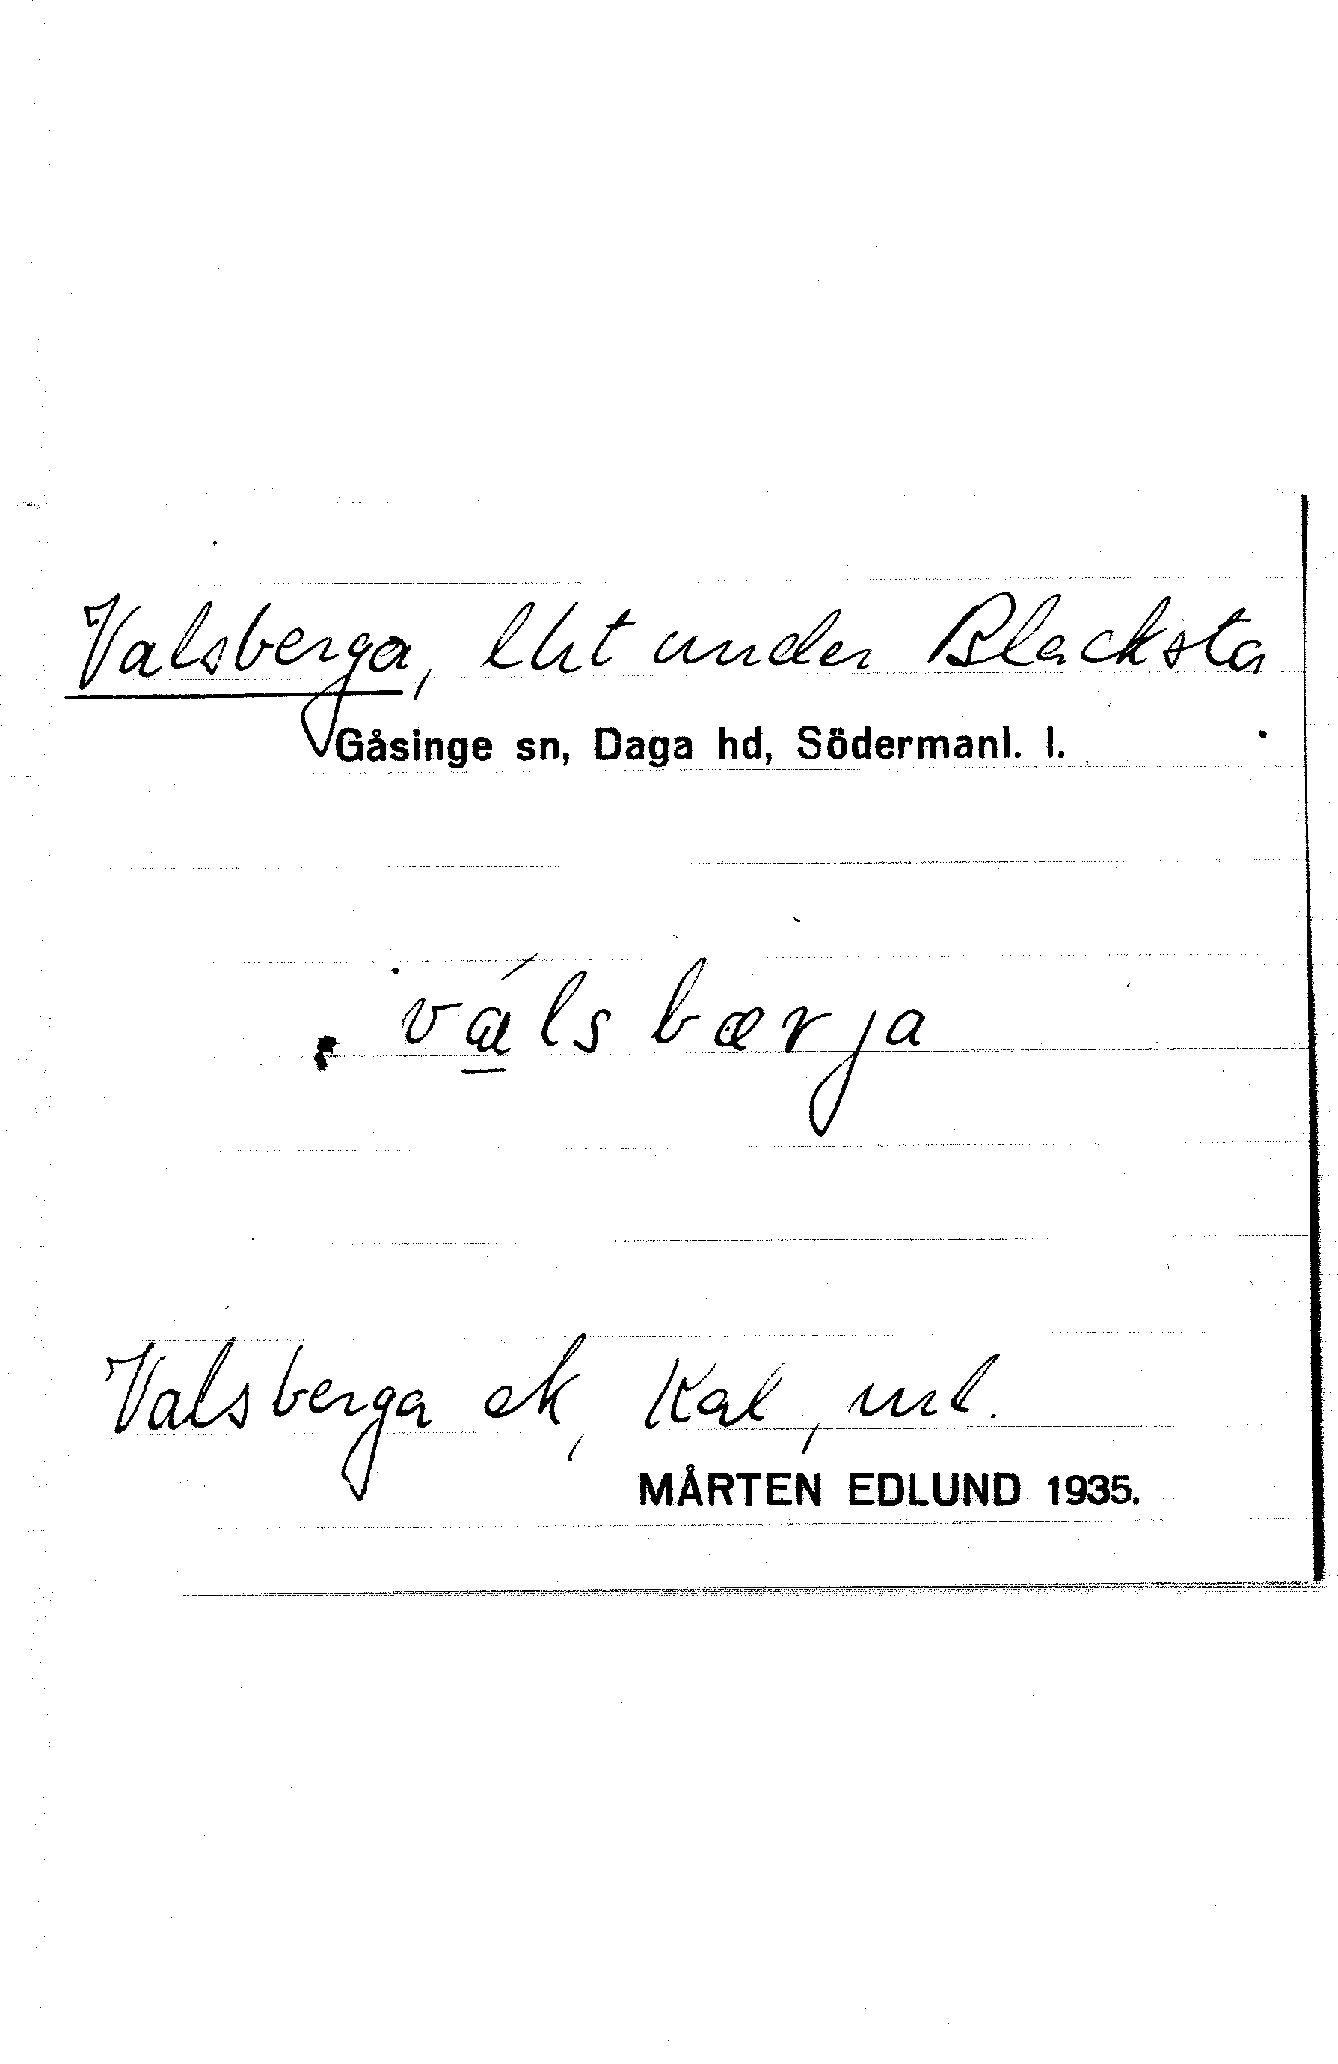 Valsberga, lht under Blacksta
Gåsinge sn, Daga hd, Södermanl. l.
válsbærja
Valsberga ek, Kal,
MÅRTEN EDLUND 1935.